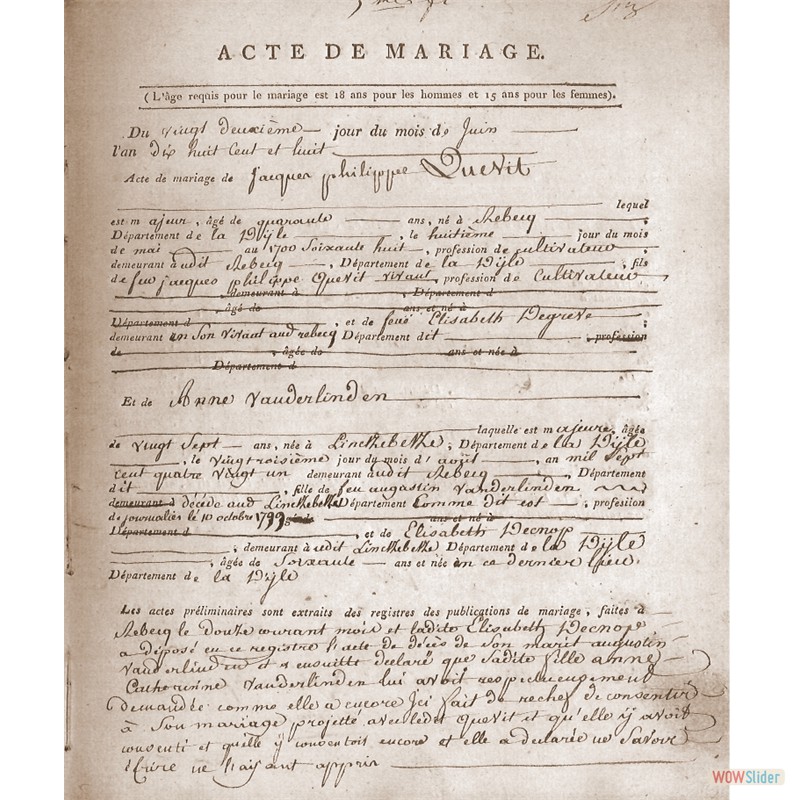 ACTE DE MARIAGE.
(L'âge requis pour le mariage est 18 ans pour les hommes et 15 ans pour les femmes).
Du vingt deuxième jour du mois de Juin
l'an dix huit cent et huit
Acte de mariage de jacques philippe Quevit
lequel
est majeur, âgé de quarante ans, né à Rebecq
Département de la Dÿle, le huitième jour du mois
de mai au 1700 Soixante huit, profession de cultivateur
demeurant à udit Rebecq, Département de la Dÿle, fils
de feu jacques philippe Quevit vivant, profession de Cultivateur
demeurant à Département d
âgé de ans et né à
Département d, et de feue Elisabeth Degreve
demeurant en Son vivant aud rebecq Département dit profession
de âgée de ans et née à
Département d
Et de Anne Vanderlinden
laquelle est majeure, âgée
de vingt Sept ans, née à Linckebeke, Département de la Dÿle
, le vingtroisième jour du mois d'août, an mil Sept
Cent quatre vingt un demeurant audit Rebecq, Département
dit, fille de feu augustin Vanderlinden
demeurant à décédé aud Linckebeke Département Comme dit est, profession
de journalier le 10 octobre 1799 âgé de ans et né à
Département d, et de Elisabeth Decnop
, demeurant à udit Linckebeke Département de la Dÿle
, âgée de Soixante ans et née en ce dernier lieu
Département de la Dÿle
Les actes préliminaires sont extraits des registres des publications de mariage, faites à
Rebecq le douze courant mois et ladite Elisabeth Decnop
a déposé en ce registre l'acte de décès de Son mari augustin
Vanderlinden et ensuitte declaré que Sadite fille anne
Catherinne Vanderlinden lui avoit respecueugement
demandée comme elle a encore Ici fait de rechef de consentir
à Son mariage projetté avec ledit Quevit et qu'elle ÿ avoit
consenti et qu'elle ÿ consentoit encore et elle a declarée ne Savoir
Ecrire ne l'aiant appris
WOWSlider